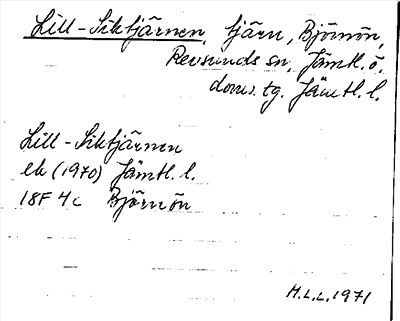 Lill-Siktjärnen, tjärn, Björnön,
Revsunds sn, Jämtl. ö.
doms. tg. Jämtl. l.
Lill-Siktjärnen
ek (1970) Jämtl. l.
18F 4c Björnön
H.L.L. 1971